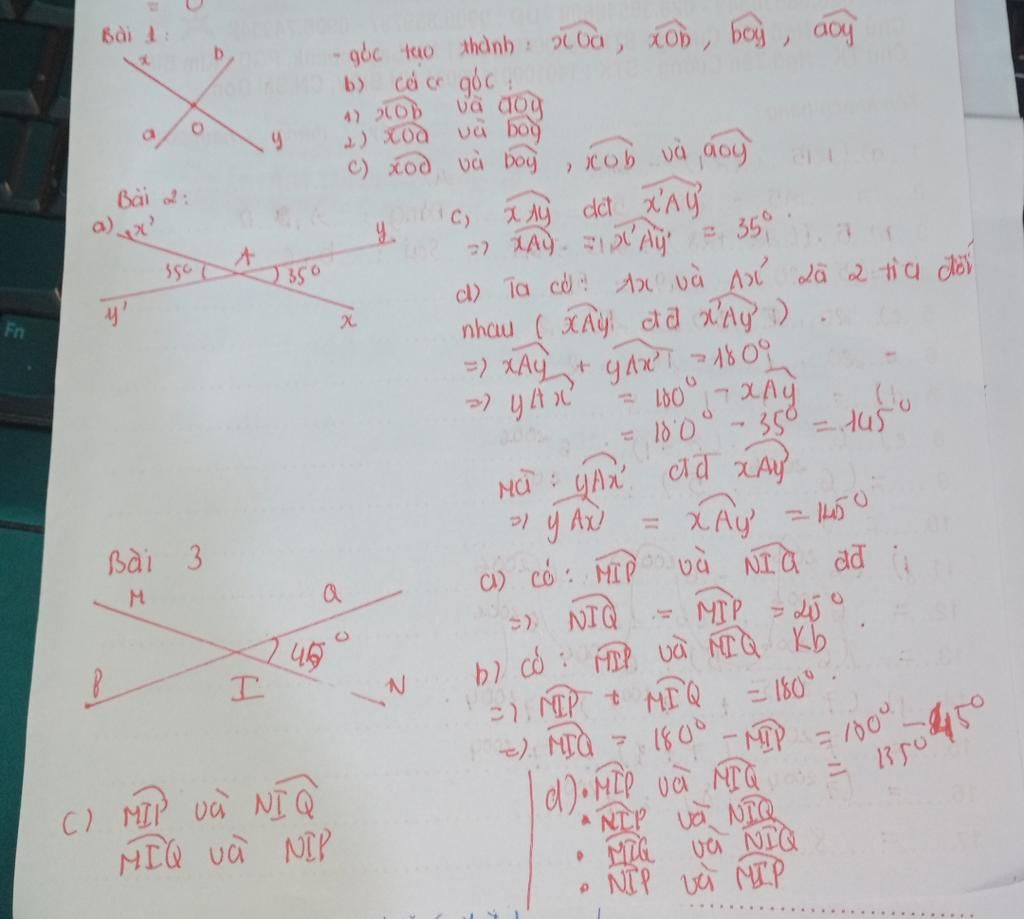 = 0
Bài 1:
x
b
a
O
y
- góc tạo thành: xOa, xOb, bOy, aOy
b) các góc:
1) xOb và aOy
2) xOa và bOy
c) xOa và bOy, xOb và aOy
Bài 2:
a) x'
y
35° A 35°
y'
x
c) xAy đđ x'Ay'
=> xAy = x'Ay' = 35°
d) Ta có: Ax và Ax' là 2 tia đối
nhau (xAy đđ x'Ay')
=> xAy + yAx' = 180°
=> yAx' = 180° - xAy
= 180° - 35° = 145°
Mà: yAx' đđ xAy'
=> yAx' = xAy' = 145°
Bài 3
M
Q
45°
P
I
N
a) có: MIP và NIQ đđ
=> NIQ = MIP = 45°
b) có: MIP và MIQ Kb
=> MIP + MIQ = 180°
=> MIQ = 180° - MIP = 180° - 45°
= 135°
c) MIP và NIQ
MIQ và NIP
d) • MIP và MIQ
• NIP và NIQ
• MIQ và NIQ
• NIP và MIP
Fn